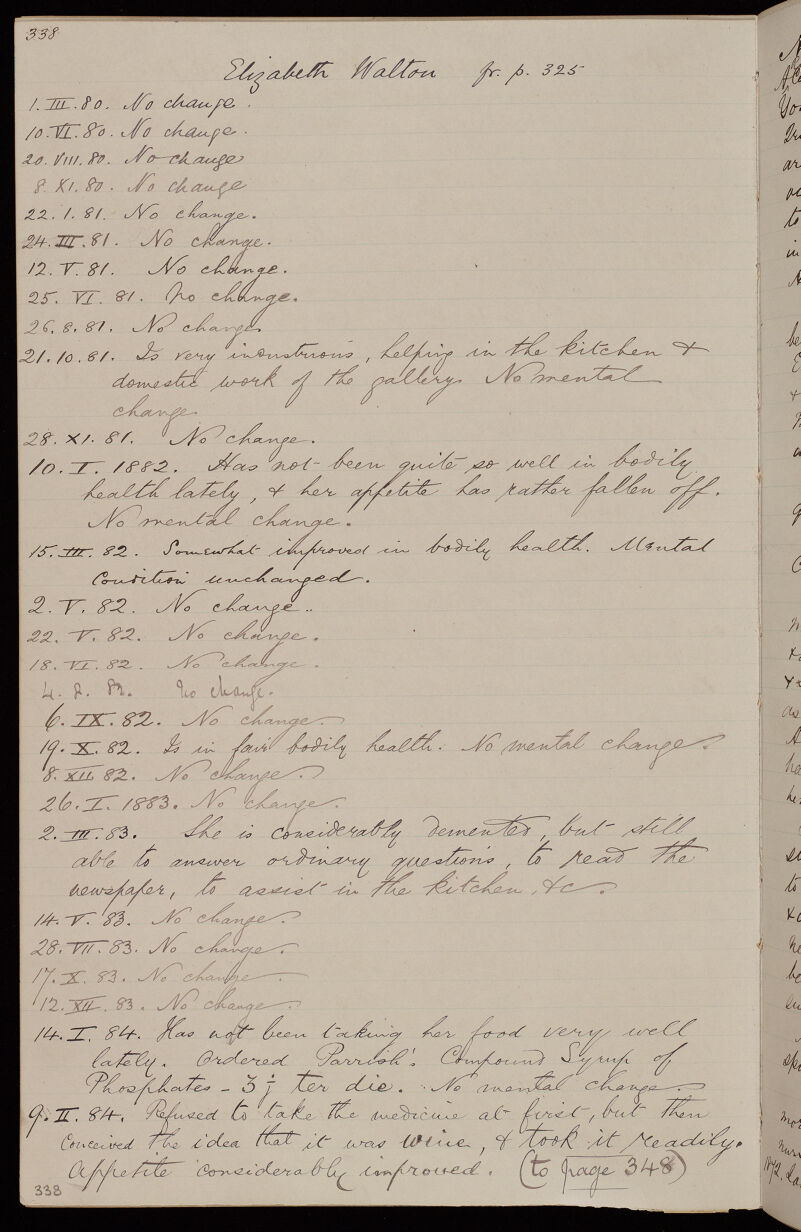 338
Elizabeth Walton fr. p. 325
1. III. 80. No change.
10. VI. 80. No change.
20. VIII. 80. No change
8. XI. 80. No change
22. 1. 81. No change.
24. III. 81. No change.
12. V. 81. No change.
25. VI. 81. No change.
26. 8. 81. No change.
21. 10. 81. Is very industrious, helping in the kitchen &
domestic work of the gallery. No mental
change.
28. XI. 81. No change.
10. I. 1882. Has not been quite so well in bodily
health lately, & her appetite has rather fallen off.
No mental change.
15. III. 82. Somewhat improved in bodily health. Mental
condition unchanged.
2. V. 82. No change..
22. V. 82. No change.
18. VI. 82. No change.
4. 8. 82. No change.
6. IX. 82. No change.
19. X. 82. Is in fair bodily health. No mental change.
8. XII. 82. No change.
26. I. 1883. No change.
2. III. 83. She is considerably demented, but still
able to answer ordinary questions, to read the
newspaper, to assist in the kitchen, &c.
14. V. 83. No change.
28. VII. 83. No change.
17. X. 83. No change.
12. XII. 83. No change.
14. I. 84. Has not been taking her food very well
lately. Ordered Parrish's Compound Syrup of
Phosphates - ʒi ter die. No mental change.
9. II. 84. Refused to take the medicine at first, but then
conceived the idea that it was wine, & took it readily.
Appetite considerably improved. (to page 348)
338